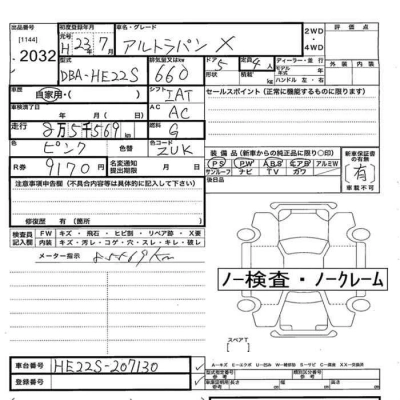 出品番号 初度登録年月 車名・グレード 評価点
[1144] 元号 H 23年 7月 アルトラパン X 2WD・4WD
2032
型式 排気量又はkw ドア 定員 ディーラー・並行 外装 内装
DBA-HE22S 660 5 4人 モデル年式 ハンドル 左・右
車歴 シフト セールスポイント（正常に機能するものに限ります）
自家用・ IAT
車検満了日 AC
年 月 日 AC
走行 燃料
8万5千569km G
色 色替 色コード
ピンク ZUK 装備品（新車からの純正品に限り○印） 新車保証書の有無
R券 9170円 名変通知提出期限 PS PW ABS エアB アルミW
サンルーフ ナビ TV カワ 有
注意事項申告欄（不具合内容等は具体的に記入して下さい） 後日品 記載不可
修復歴 有（箇所 ）
検査員記入欄 FW キズ・飛石・ヒビ割り・リペア跡・X要
内装 キズ・汚レ・コゲ・穴・スレ・キレ・破レ
メーター指示 85569km
ノー検査・ノークレーム
スペアT
車台番号 HE22S-207130
登録番号